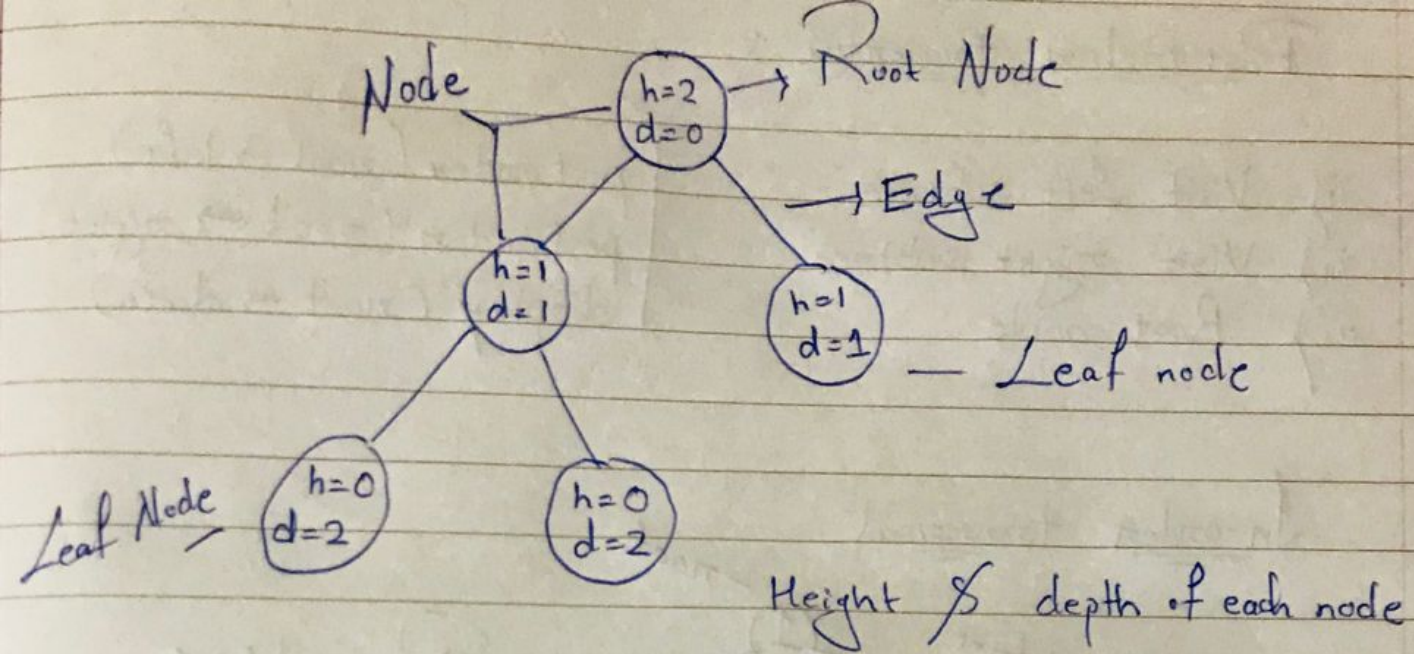 Node
h=2
d=0
→ Root Node
→ Edge
h=1
d=1
h=1
d=1
— Leaf node
Leaf Node
h=0
d=2
h=0
d=2
Height & depth of each node